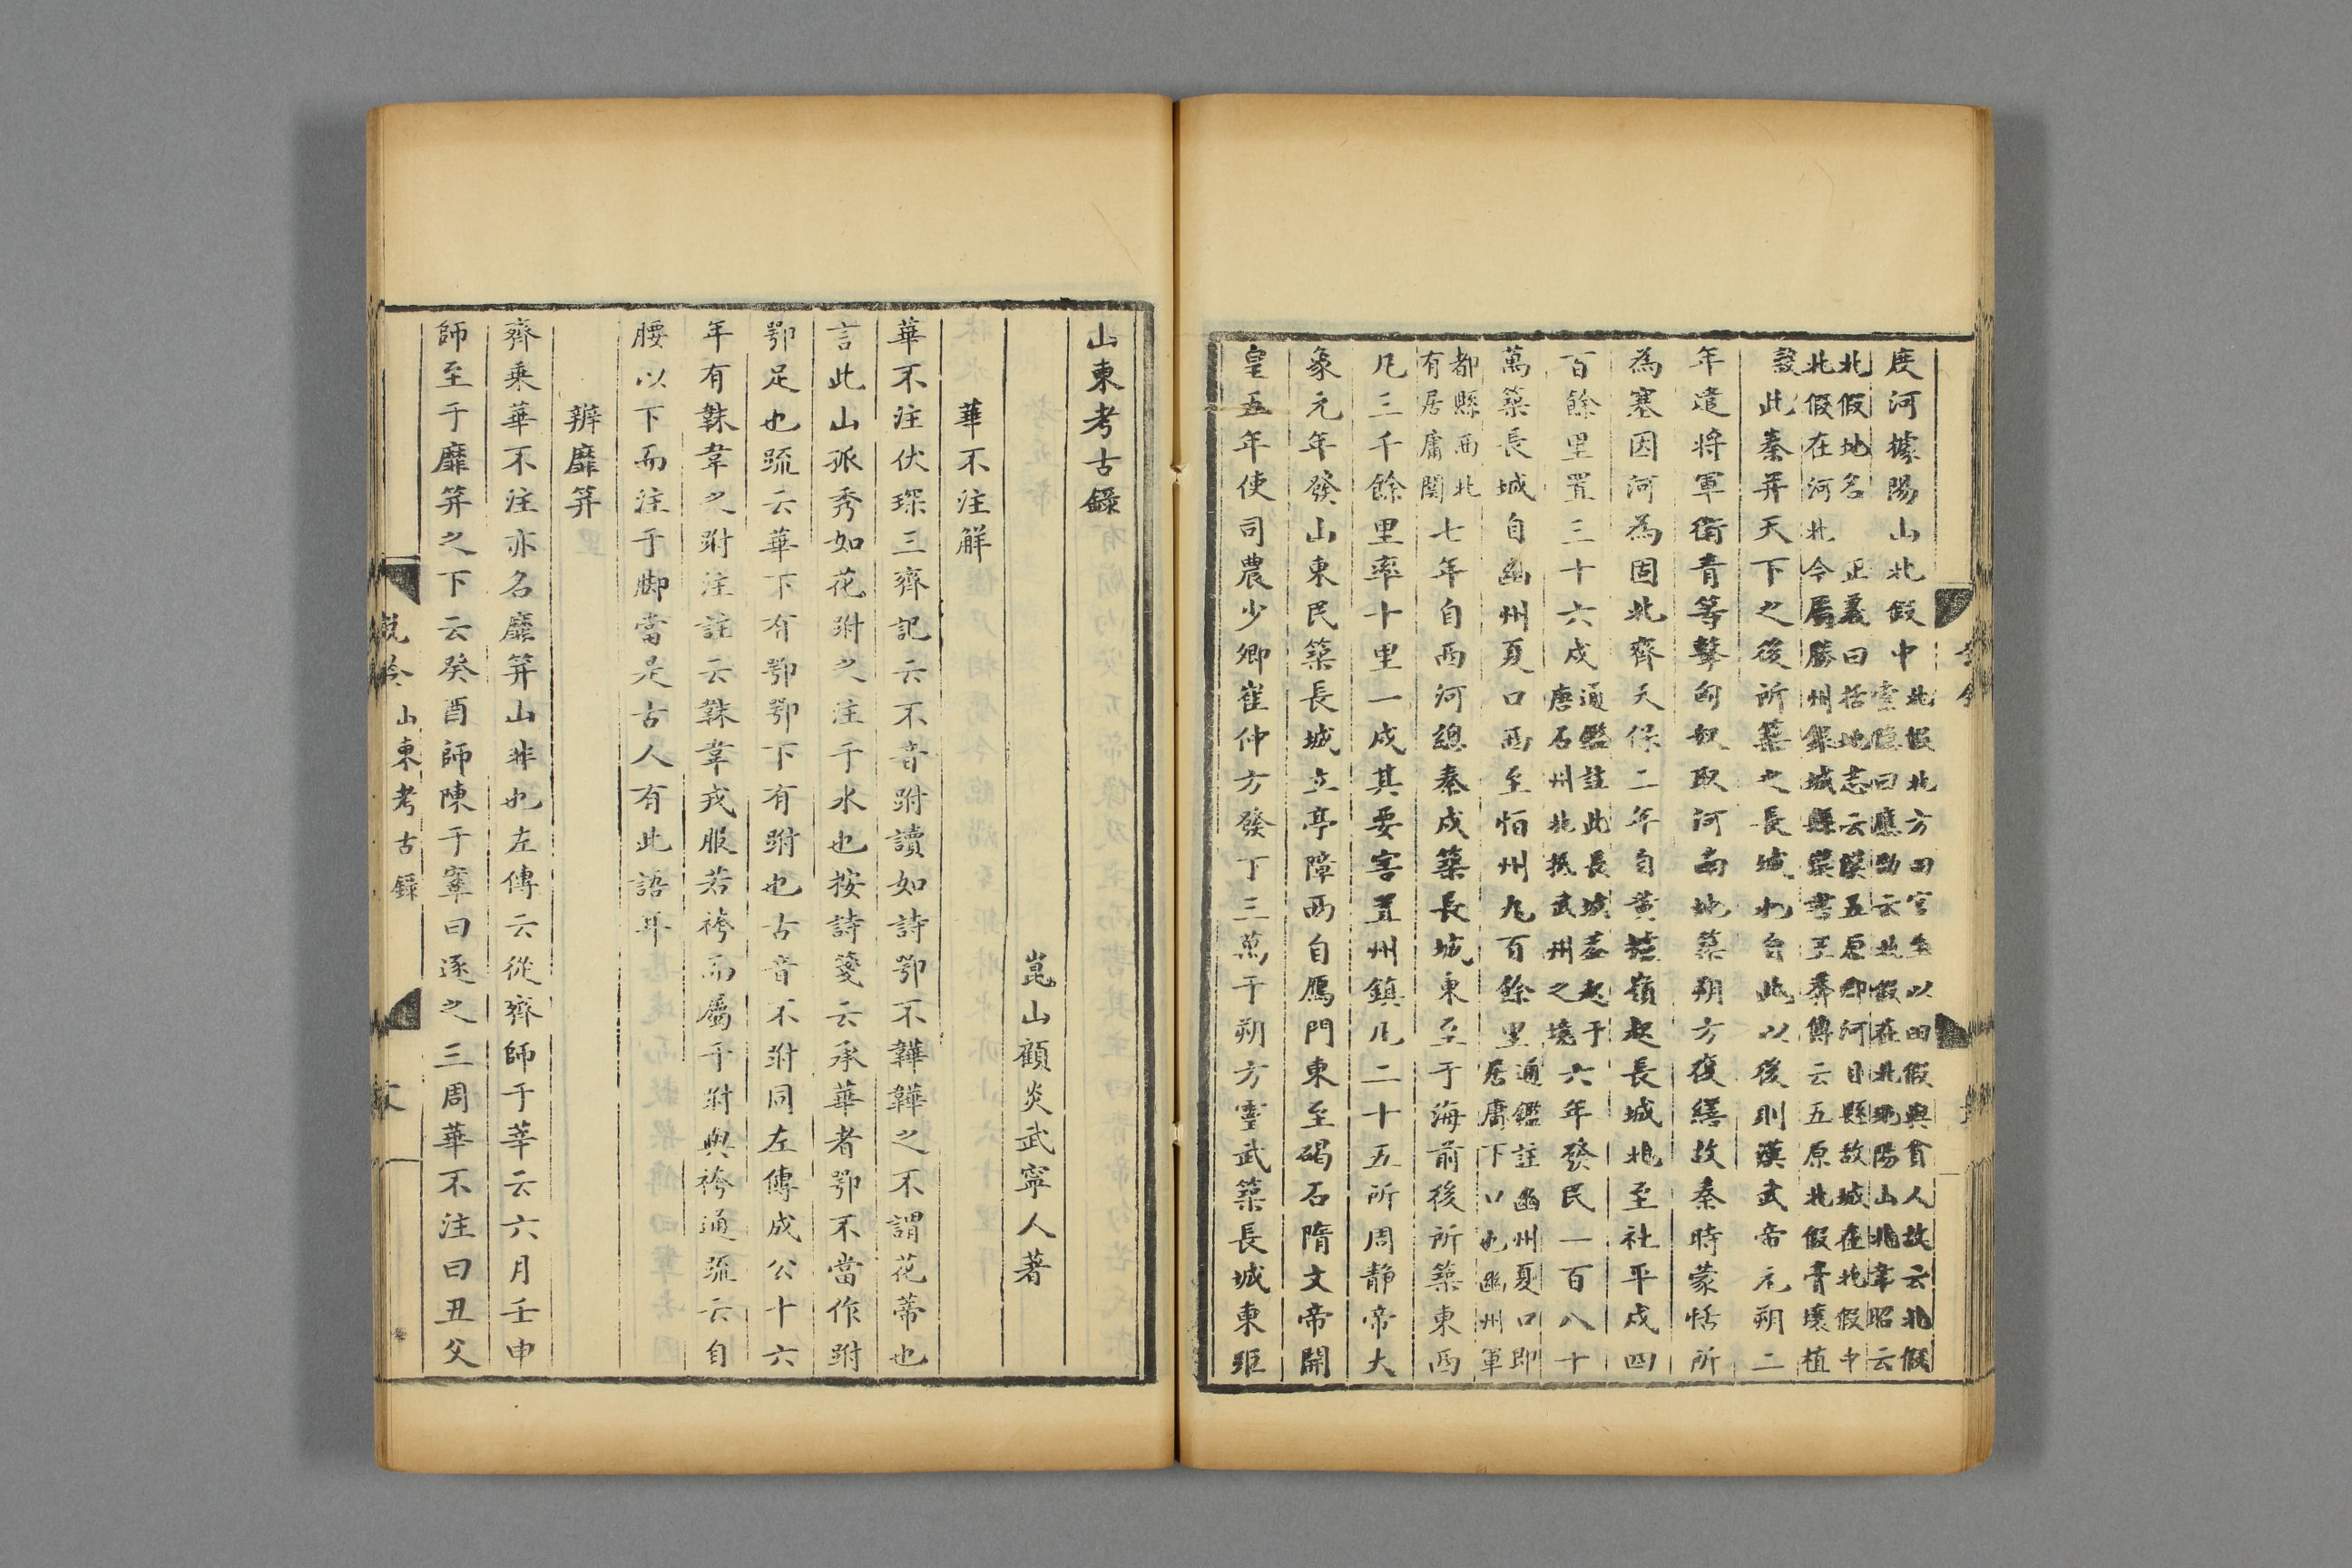 度河據陽山北假中北假北方田官主以田假與貧人故云北假
索隱曰應劭云北假在北地陽山北韋昭云
北假地名 正義曰括地志云漢五原郡河目縣故城在北假中
北假在河北今屬勝州銀城縣漢書王莽傳云五原北假膏壤植
穀此秦并天下之後所築之長城也自此以後則漢武帝元朔二
年遣將軍衛青等擊匈奴取河南地築朔方復繕故秦時蒙恬所
為塞因河為固北齊天保二年自黃櫨嶺起長城北至社平戍四
百餘里置三十六戍通鑑註此長城蓋起于唐石州北抵武州之境六年發民一百八十
萬築長城自幽州夏口西至恒州九百餘里通鑑註幽州夏口即居庸下口也幽州軍
都縣西北有居庸關七年自西河總秦戍築長城東至于海前後所築東西
凡三千餘里率十里一戍其要害置州鎮凡二十五所周靜帝大
象元年發山東民築長城立亭障西自鴈門東至碣石隋文帝開
皇五年使司農少卿崔仲方發丁三萬于朔方靈武築長城東距
山東考古錄
崑山顧炎武寧人著
華不注解
華不注伏琛三齊記云不音跗讀如詩鄂不韡韡之不謂花蒂也
言此山孤秀如花跗之注于水也按詩箋云承華者鄂不當作跗
鄂足也疏云華下有鄂鄂下有跗也古音不跗同左傳成公十六
年有韎韋之跗注註云韎韋戎服若袴而屬于跗與袴通疏云自
腰以下而注于腳當是古人有此語耳
辨靡笄
齊乘華不注亦名靡笄山非也左傳云從齊師于莘云六月壬申
師至于靡笄之下云癸酉師陳于鞌曰逐之三周華不注曰丑父
山東考古錄